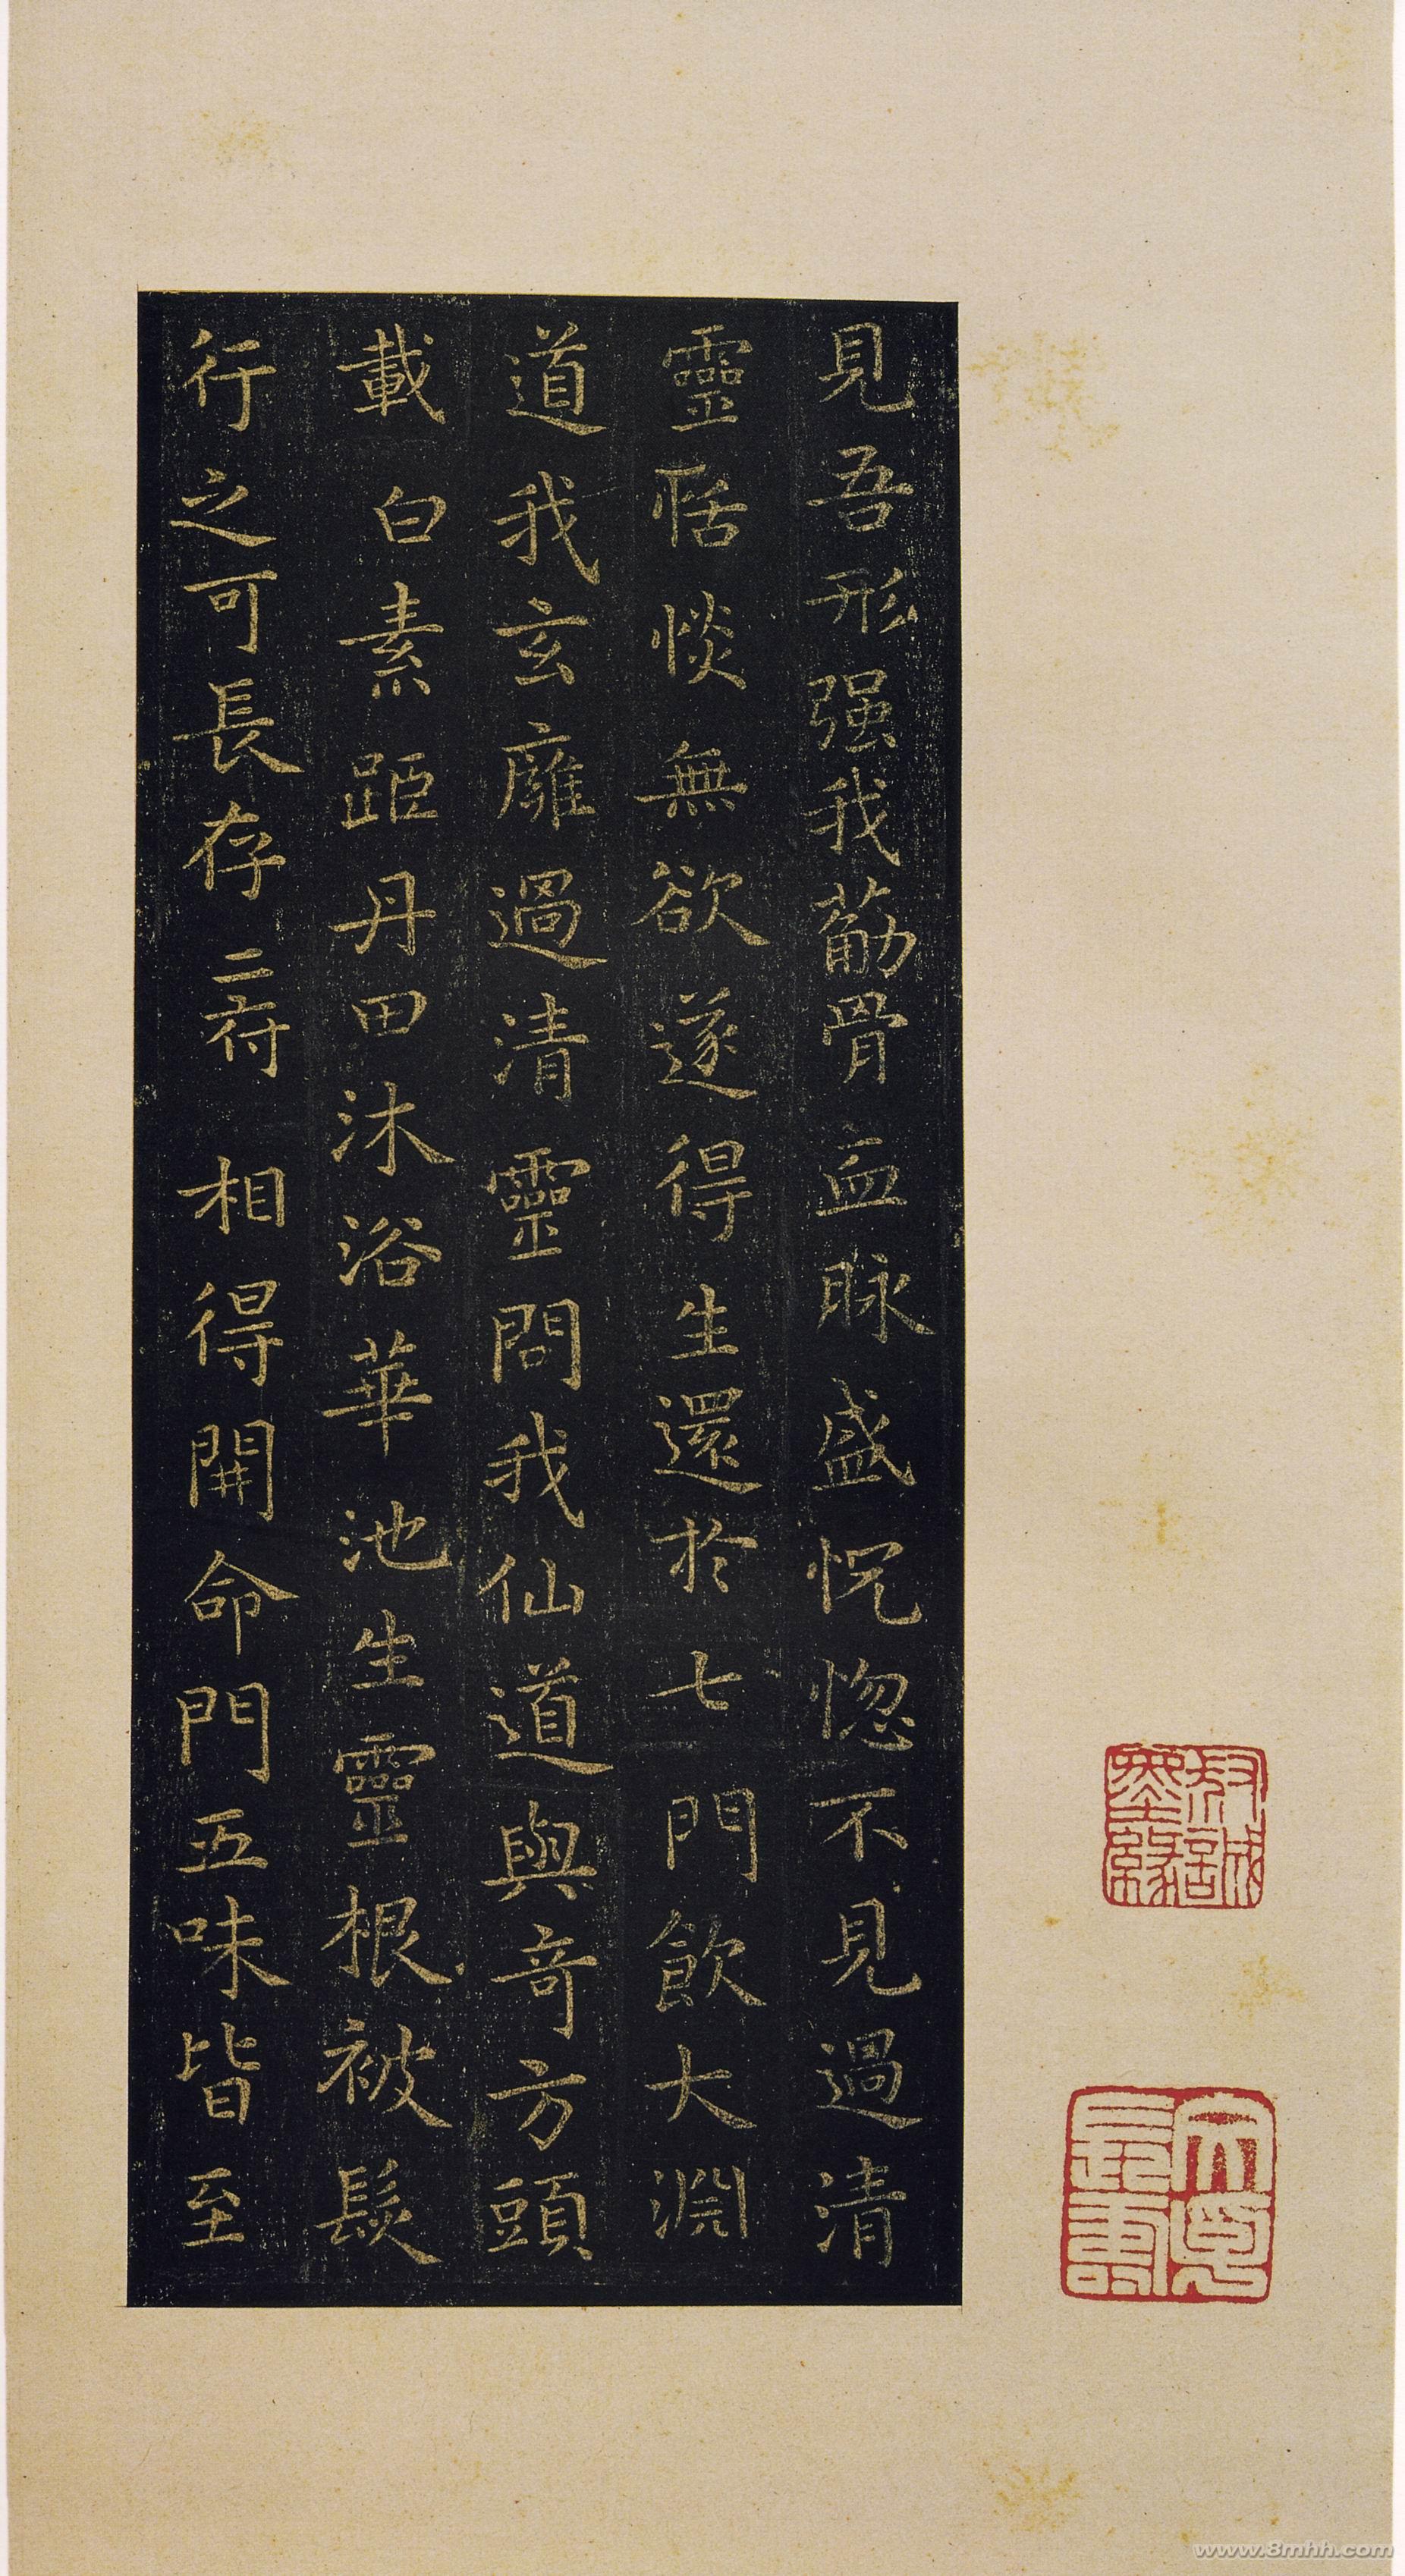 見吾形强我葪骨血脉盛怳惚不見過清
靈恬惔無欲遂得生還於七門飲大淵
道我玄廱過清靈問我仙道與奇方頭
載白素距丹田沐浴華池生靈根被髮
行之可長存二府相得開命門五味皆至
www.8mhh.com